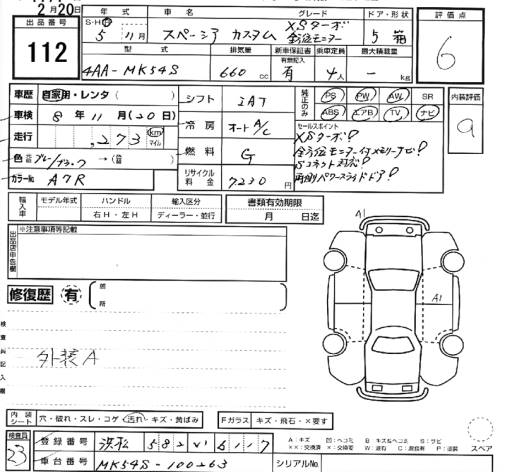 2月20日
出品番号 年式 車名 グレード ドア・形状 評価点
112 S・H・R 5年 11月 スペーシア カスタム XSターボ 全方位モニター 5 箱 6
型式 排気量 新車保証書 有無記入 乗車定員 最大積載量
4AA-MK54S 660 cc 有 4人 - kg
車歴 自家用・レンタ ( ) シフト IAT 純正のみ PS PW AW SR 内装評価
車検 8年 11月 (20日) ABS エアB TV ナビ
走行 ,273 km マイル 冷房 オートA/C セールスポイント 9
XSターボ!
色 グレー/ブラック →(替 ) 燃料 G 全方位モニター付メモリーナビ!
カラーNo A7R リサイクル料金 7230円 両側パワースライドドア!
輸入車 モデル年式 ハンドル 輸入区分 書類有効期限
右H・左H ディーラー・並行 月 日迄
出品店申告欄 ※注意事項等記載
修復歴 有 箇所
A1
A1
検査員記入欄
外装A
内装シート 穴・破れ・スレ・コゲ・汚れ・キズ・黄ばみ Fガラス キズ・飛石・×要す
検査員 23 登録番号 浜松 582 い 6117
A:キズ 凹:ヘコミ B:キズ&ヘコミ S:サビ
××:交換済 ×:交換要 W:波 C:腐食 P:塗装 スペア
車台番号 MK54S-100263 シリアルNo.